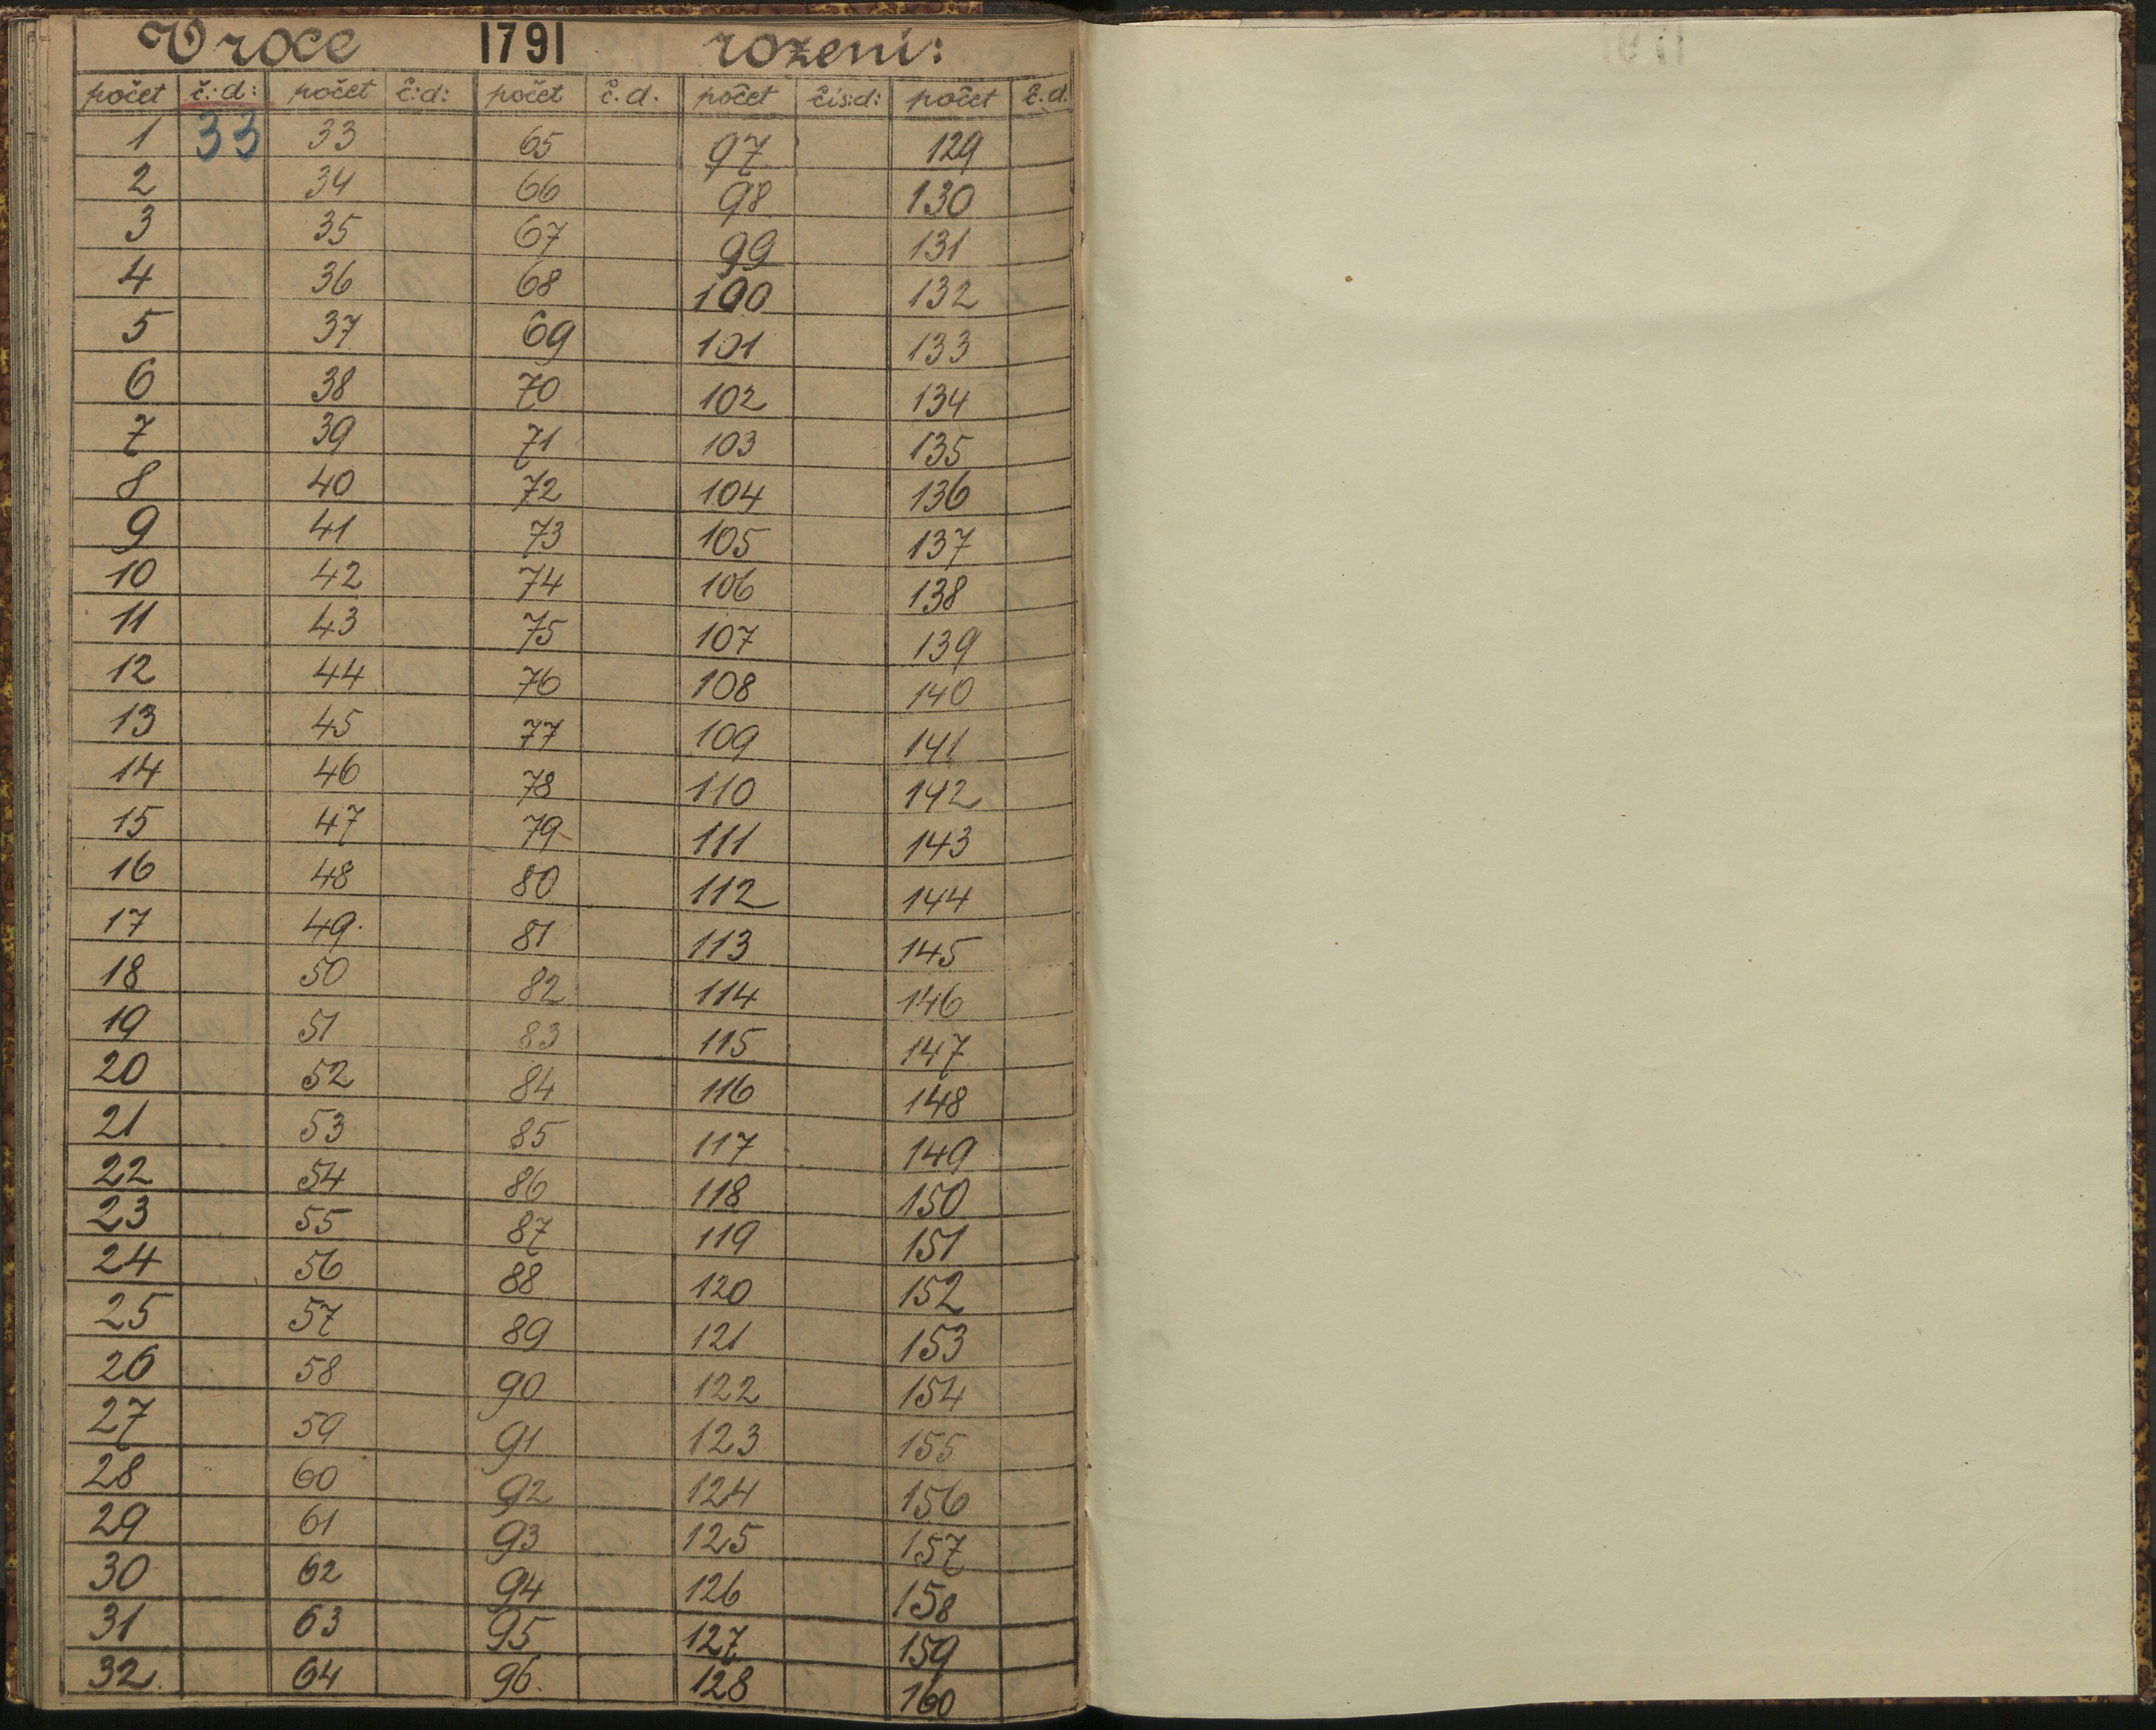 V roce 1791 rozeni:
počet č.:d: počet č:d: počet č.d. počet čís:d: počet č.d.
1 33 33 65 97 129
2 34 66 98 130
3 35 67 99 131
4 36 68 100 132
5 37 69 101 133
6 38 70 102 134
7 39 71 103 135
8 40 72 104 136
9 41 73 105 137
10 42 74 106 138
11 43 75 107 139
12 44 76 108 140
13 45 77 109 141
14 46 78 110 142
15 47 79 111 143
16 48 80 112 144
17 49. 81 113 145
18 50 82 114 146
19 51 83 115 147
20 52 84 116 148
21 53 85 117 149
22 54 86 118 150
23 55 87 119 151
24 56 88 120 152
25 57 89 121 153
26 58 90 122 154
27 59 91 123 155
28 60 92 124 156
29 61 93 125 157
30 62 94 126 158
31 63 95 127 159
32. 64 96. 128 160